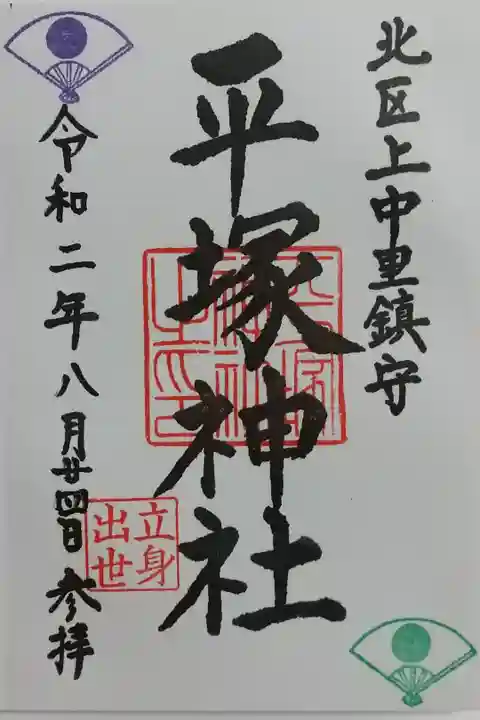 北区上中里鎮守
平塚神社
平塚神社之印
立身出世
令和二年八月廿四日参拝